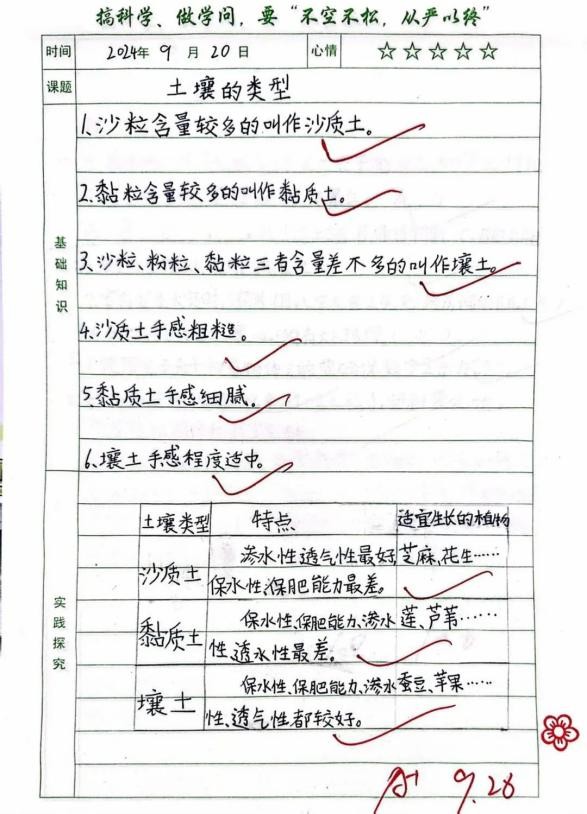 搞科学、做学问，要“不空不松，从严以终”
时间 2024年 9 月 20 日 心情 ☆☆☆☆☆
课题 土壤的类型
基础知识
1.沙粒含量较多的叫作沙质土。
2.黏粒含量较多的叫作黏质土。
3.沙粒、粉粒、黏粒三者含量差不多的叫作壤土。
4.沙质土手感粗糙。
5.黏质土手感细腻。
6.壤土手感程度适中。
实践探究
土壤类型 特点 适宜生长的植物
沙质土 渗水性透气性最好, 芝麻、花生……
保水性、保肥能力最差。
黏质土 保水性、保肥能力、渗水 莲、芦苇……
性、透水性最差。
壤土 保水性、保肥能力、渗水 蚕豆、苹果……
性、透气性都较好。
A+ 9.28